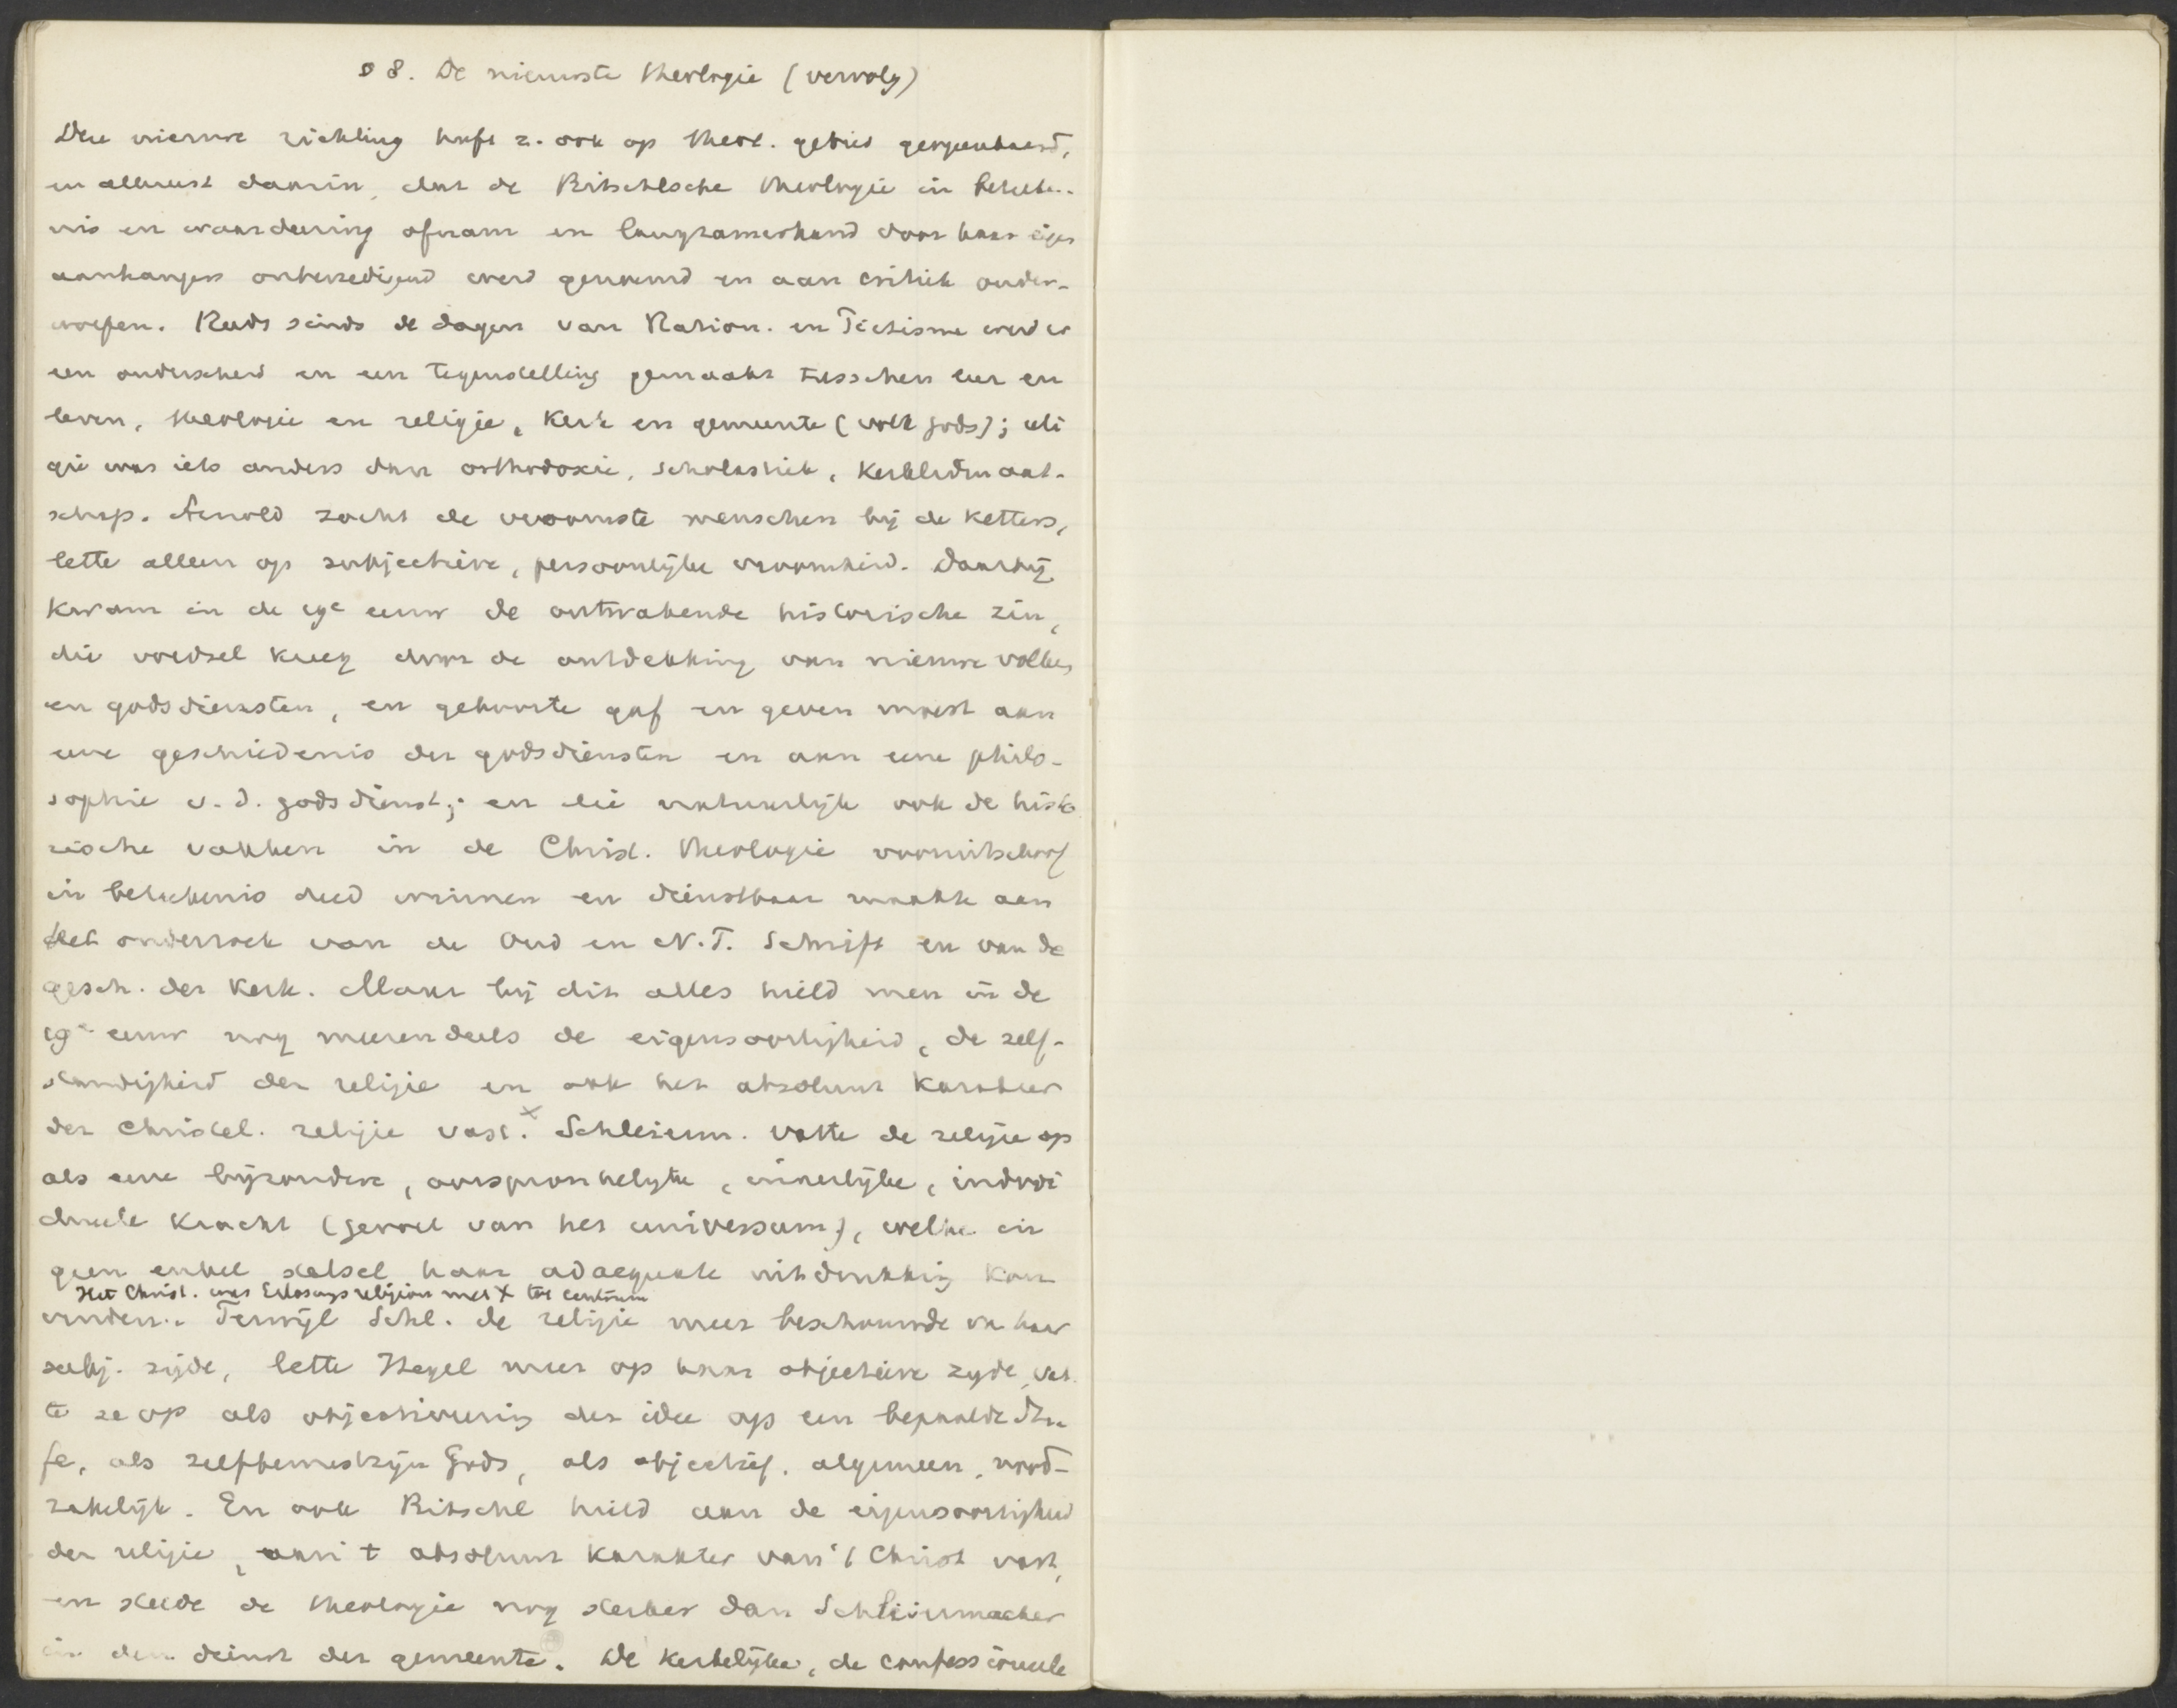 § 8. De nieuwste theologie (vervolg)
Deze nieuwe richting heeft z. ook op theol. gebied geopenbaard,
en allereerst daarin, dat de Ritschlsche theologie in beteeke-
nis en waardeering afnam en langzamerhand door haar eigen
aanhangers onbevredigend werd genoemd en aan critiek onder-
worpen. Reeds sinds de dagen van Ration. en Pietisme werd er
een onderscheid en een tegenstelling gemaakt tusschen leer en
leven, theologie en religie, kerk en gemeente (volk Gods); reli
gie was iets anders dan orthodoxie, scholastiek, kerklidmaat-
schap. Arnold zocht de vroomste menschen bij de ketters,
lette alleen op subjectieve, persoonlijke vroomheid. Daarbij
kwam in de 19e eeuw de ontwakende historische zin,
die voedsel kreeg door de ontdekking van nieuwe volken
en godsdiensten, en geboorte gaf en geven moest aan
eene geschiedenis der godsdiensten en aan eene philo-
sophie v. d. godsdienst; en die natuurlijk ook de histo
rische vakken in de Christ. theologie vooruitschoof
in beteekenis deed winnen en dienstbaar maakte aan
het onderzoek van de Oud en N.T. Schrift en van de
gesch. der Kerk. Maar bij dit alles hield men in de
19e eeuw nog meerendeels de eigensoortigheid, de zelf-
standigheid der religie en ook het absoluut karakter
der Christel. religie vast. x Schleierm. vatte de religie op
als eene bijzondere, oorspronkelijke, innerlijke, individi
dueele kracht (gevoel van het universum), welke in
geen enkel stelsel haar adaequate uitdrukking kon
Het Christ. was Erlösungsreligion met X tot centrum
vinden. Terwijl Schl. de religie meer beschouwde van haar
subj. zijde, lette Hegel meer op haar objectieve zijde, vat
te ze op als objectiveering der idee op een bepaalde tra
fe, als zelfbewustzijn Gods, als objectief, algemeen, nood-
zakelijk. En ook Ritschl hield aan de eigensoortigheid
der religie, aan t absoluut karakter van 't Christ vast,
en stelde de theologie nog sterker dan Schleiermacher
in den dienst der gemeente. De kerkelijke, de confessioneele